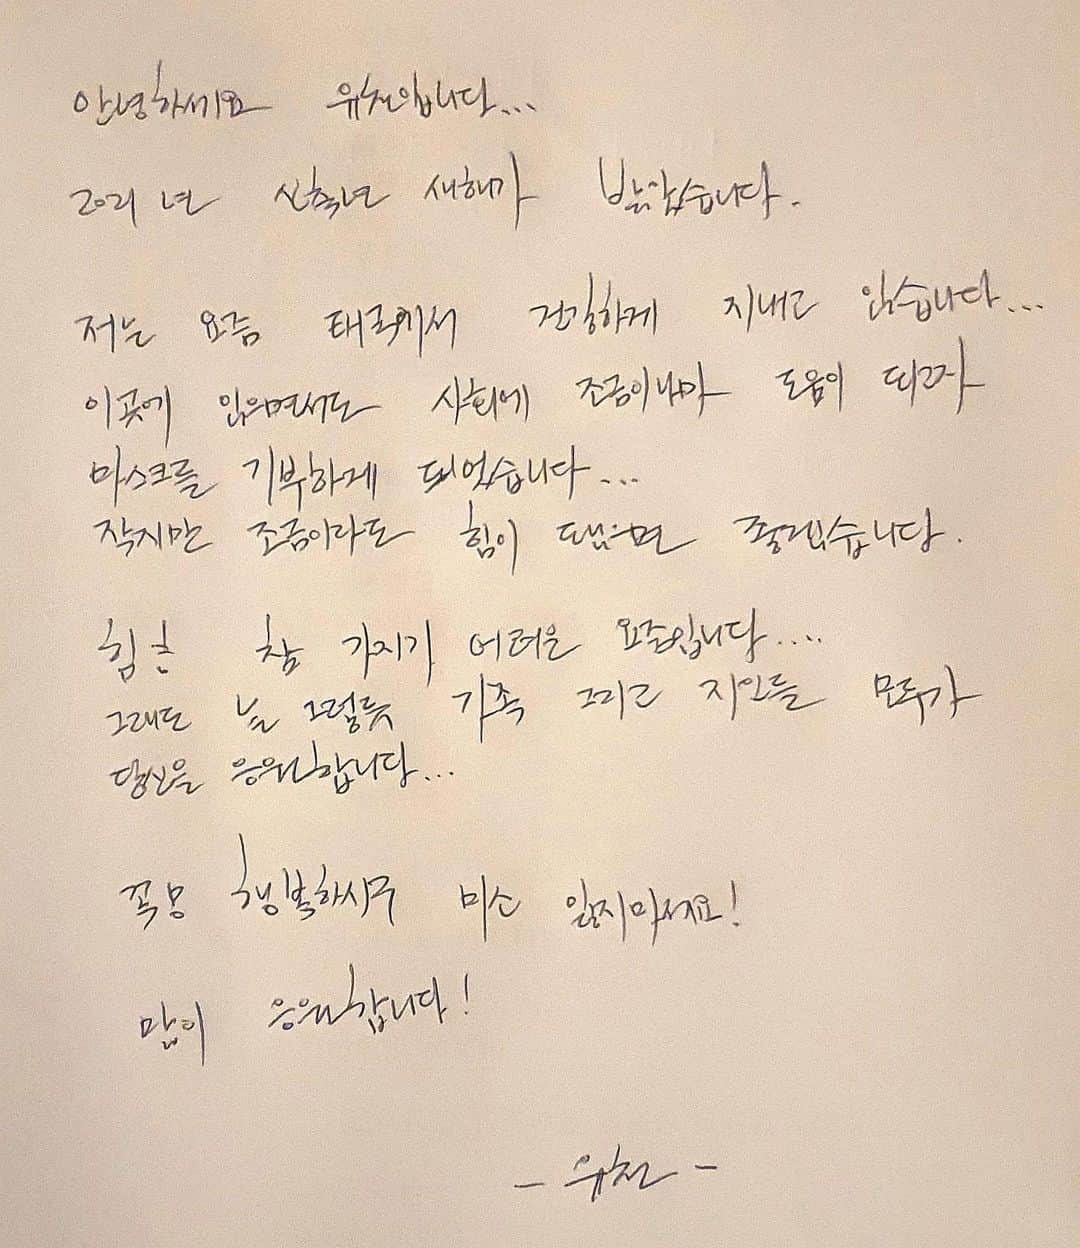 안녕하세요 유천입니다...
2021년 신축년 새해가 밝았습니다.
저는 요즘 태국에서 건강하게 지내고 있습니다...
이곳에 있으면서도 사회에 조금이나마 도움이 되고자
마스크를 기부하게 되었습니다...
작지만 조금이라도 힘이 됐으면 좋겠습니다.
힘을 참 가지기 어려운 요즘입니다....
그래도 늘 그렇듯 가족 그리고 지인들 모두가
당신을 응원합니다...
꼭 행복하시구 미소 잃지마세요!
많이 응원합니다!
- 유천 -